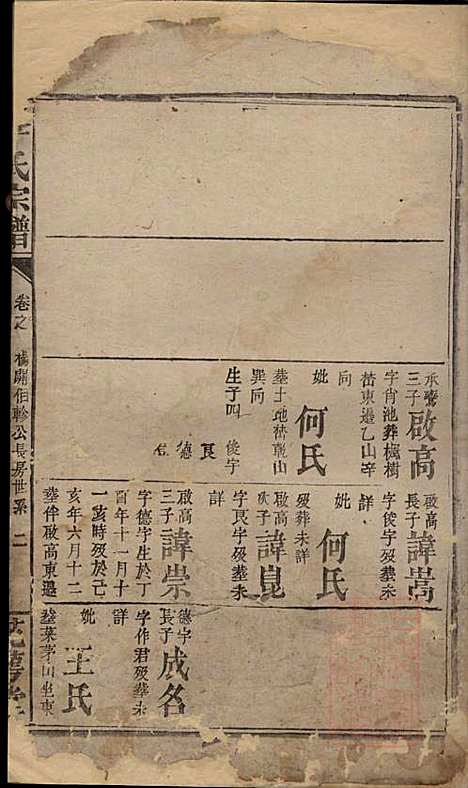 氏宗譜
卷之
公長房世系 二
三子啟高
字肖池葬楓樹
東邊乙山辛
向
妣何氏
墓土地乾山
巽向
生子四
俊宇
良
德
啟高
長子諱嵩
字俊宇歿葬未
詳
妣何氏
歿葬未詳
啟高
次子諱崑
字良宇歿葬未
詳
啟高
三子諱崇
字德宇生於丁
酉年十一月十
一亥時歿於己
亥年六月十二
葬伴啟高東邊
德宇
長子成名
字作君歿葬未
詳
妣王氏
葬葉茅山坐東